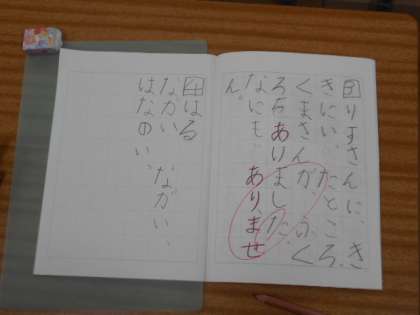 国りすさんに、き
きにい、たところ、
くまさんが、ふく
ろをあけました。
なにも、ありませ
ん。
四はる
ながい、ながい、
はなのい、